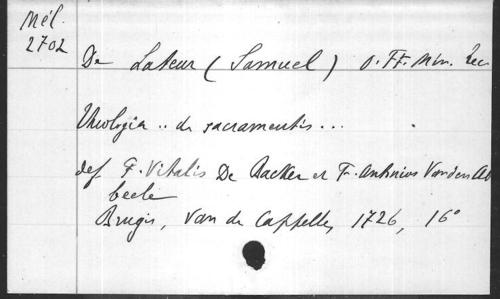 Mél.
2702
De Lateur (Samuel) O. FF. Min. Rec
Theologia .. de sacramentis ...
def F. Vitalis De Backer et Fr. Antonius Vanden Ab
beele
Brugis, Van de Cappelle, 1726, 16°